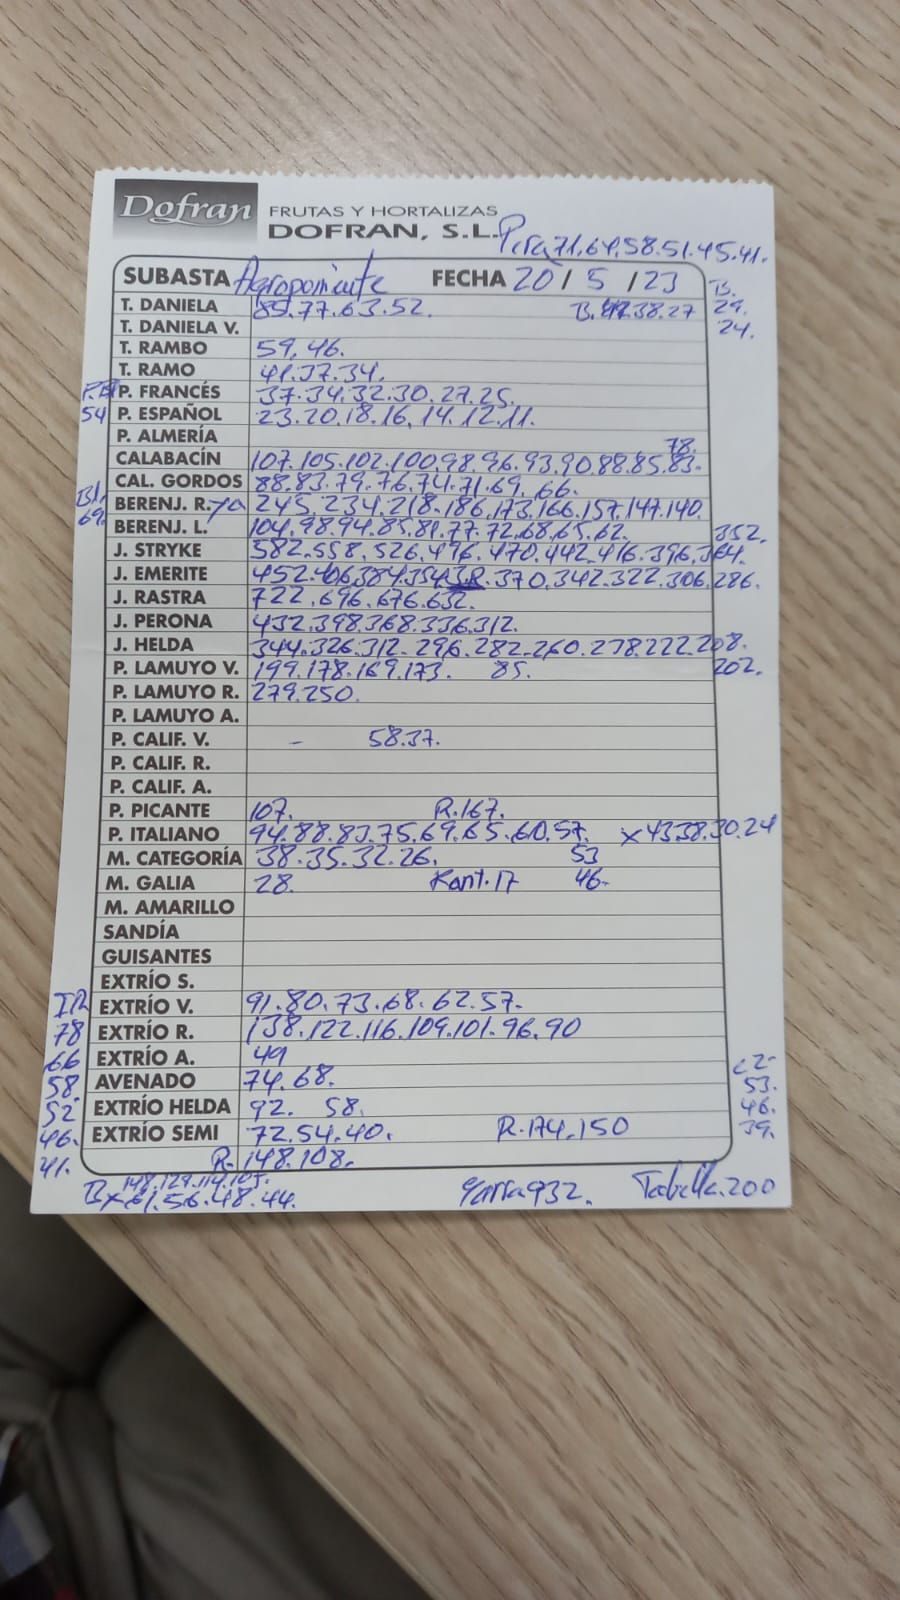 Dofran FRUTAS Y HORTALIZAS
DOFRAN, S.L. Pera 71.64.58.51.45.41.
SUBASTA Agroponiente FECHA 20/5/23 B.
T. DANIELA 85.77.63.52. B. 38.27 29.
T. DANIELA V. 24.
T. RAMBO 59.46.
T. RAMO 41.37.34.
P. FRANCÉS 37.34.32.30.27.25.
54 P. ESPAÑOL 23.20.18.16.14.12.11.
P. ALMERÍA 78.
CALABACÍN 107.105.102.100.98.96.93.90.88.85.83.
CAL. GORDOS 88.83.79.76.74.71.69.66.
Bl. BERENJ. R. 245.234.218.186.173.166.157.147.140.
69. BERENJ. L. 104.98.94.85.81.77.72.68.65.62. 352.
J. STRYKE 582.558.526.496.470.442.416.396.364.
J. EMERITE 452.406.384.354. 370.342.322.306.286.
J. RASTRA 722.696.676.632.
J. PERONA 432.398.368.336.312.
J. HELDA 344.326.312.296.282.260.238.222.208.
P. LAMUYO V. 199.178.169.173. 85. 202.
P. LAMUYO R. 279.250.
P. LAMUYO A.
P. CALIF. V. - 58.37.
P. CALIF. R.
P. CALIF. A.
P. PICANTE 107. R.167.
P. ITALIANO 94.88.83.75.69.65.60.57. x 43.38.30.24
M. CATEGORÍA 38.35.32.26. 53
M. GALIA 28. Kant.17 46-
M. AMARILLO
SANDÍA
GUISANTES
EXTRÍO S.
EXTRÍO V. 91.80.73.68.62.57.
78 EXTRÍO R. 138.122.116.109.101.96.90
66 EXTRÍO A. 49
58. AVENADO 74.68. 53.
52 EXTRÍO HELDA 92. 58. 46.
46. EXTRÍO SEMI 72.54.40. R.174.150 39.
41. R. 148.108.
148.129.114.105.
B x 61.56.48.44. Garra 932. Tabella.200